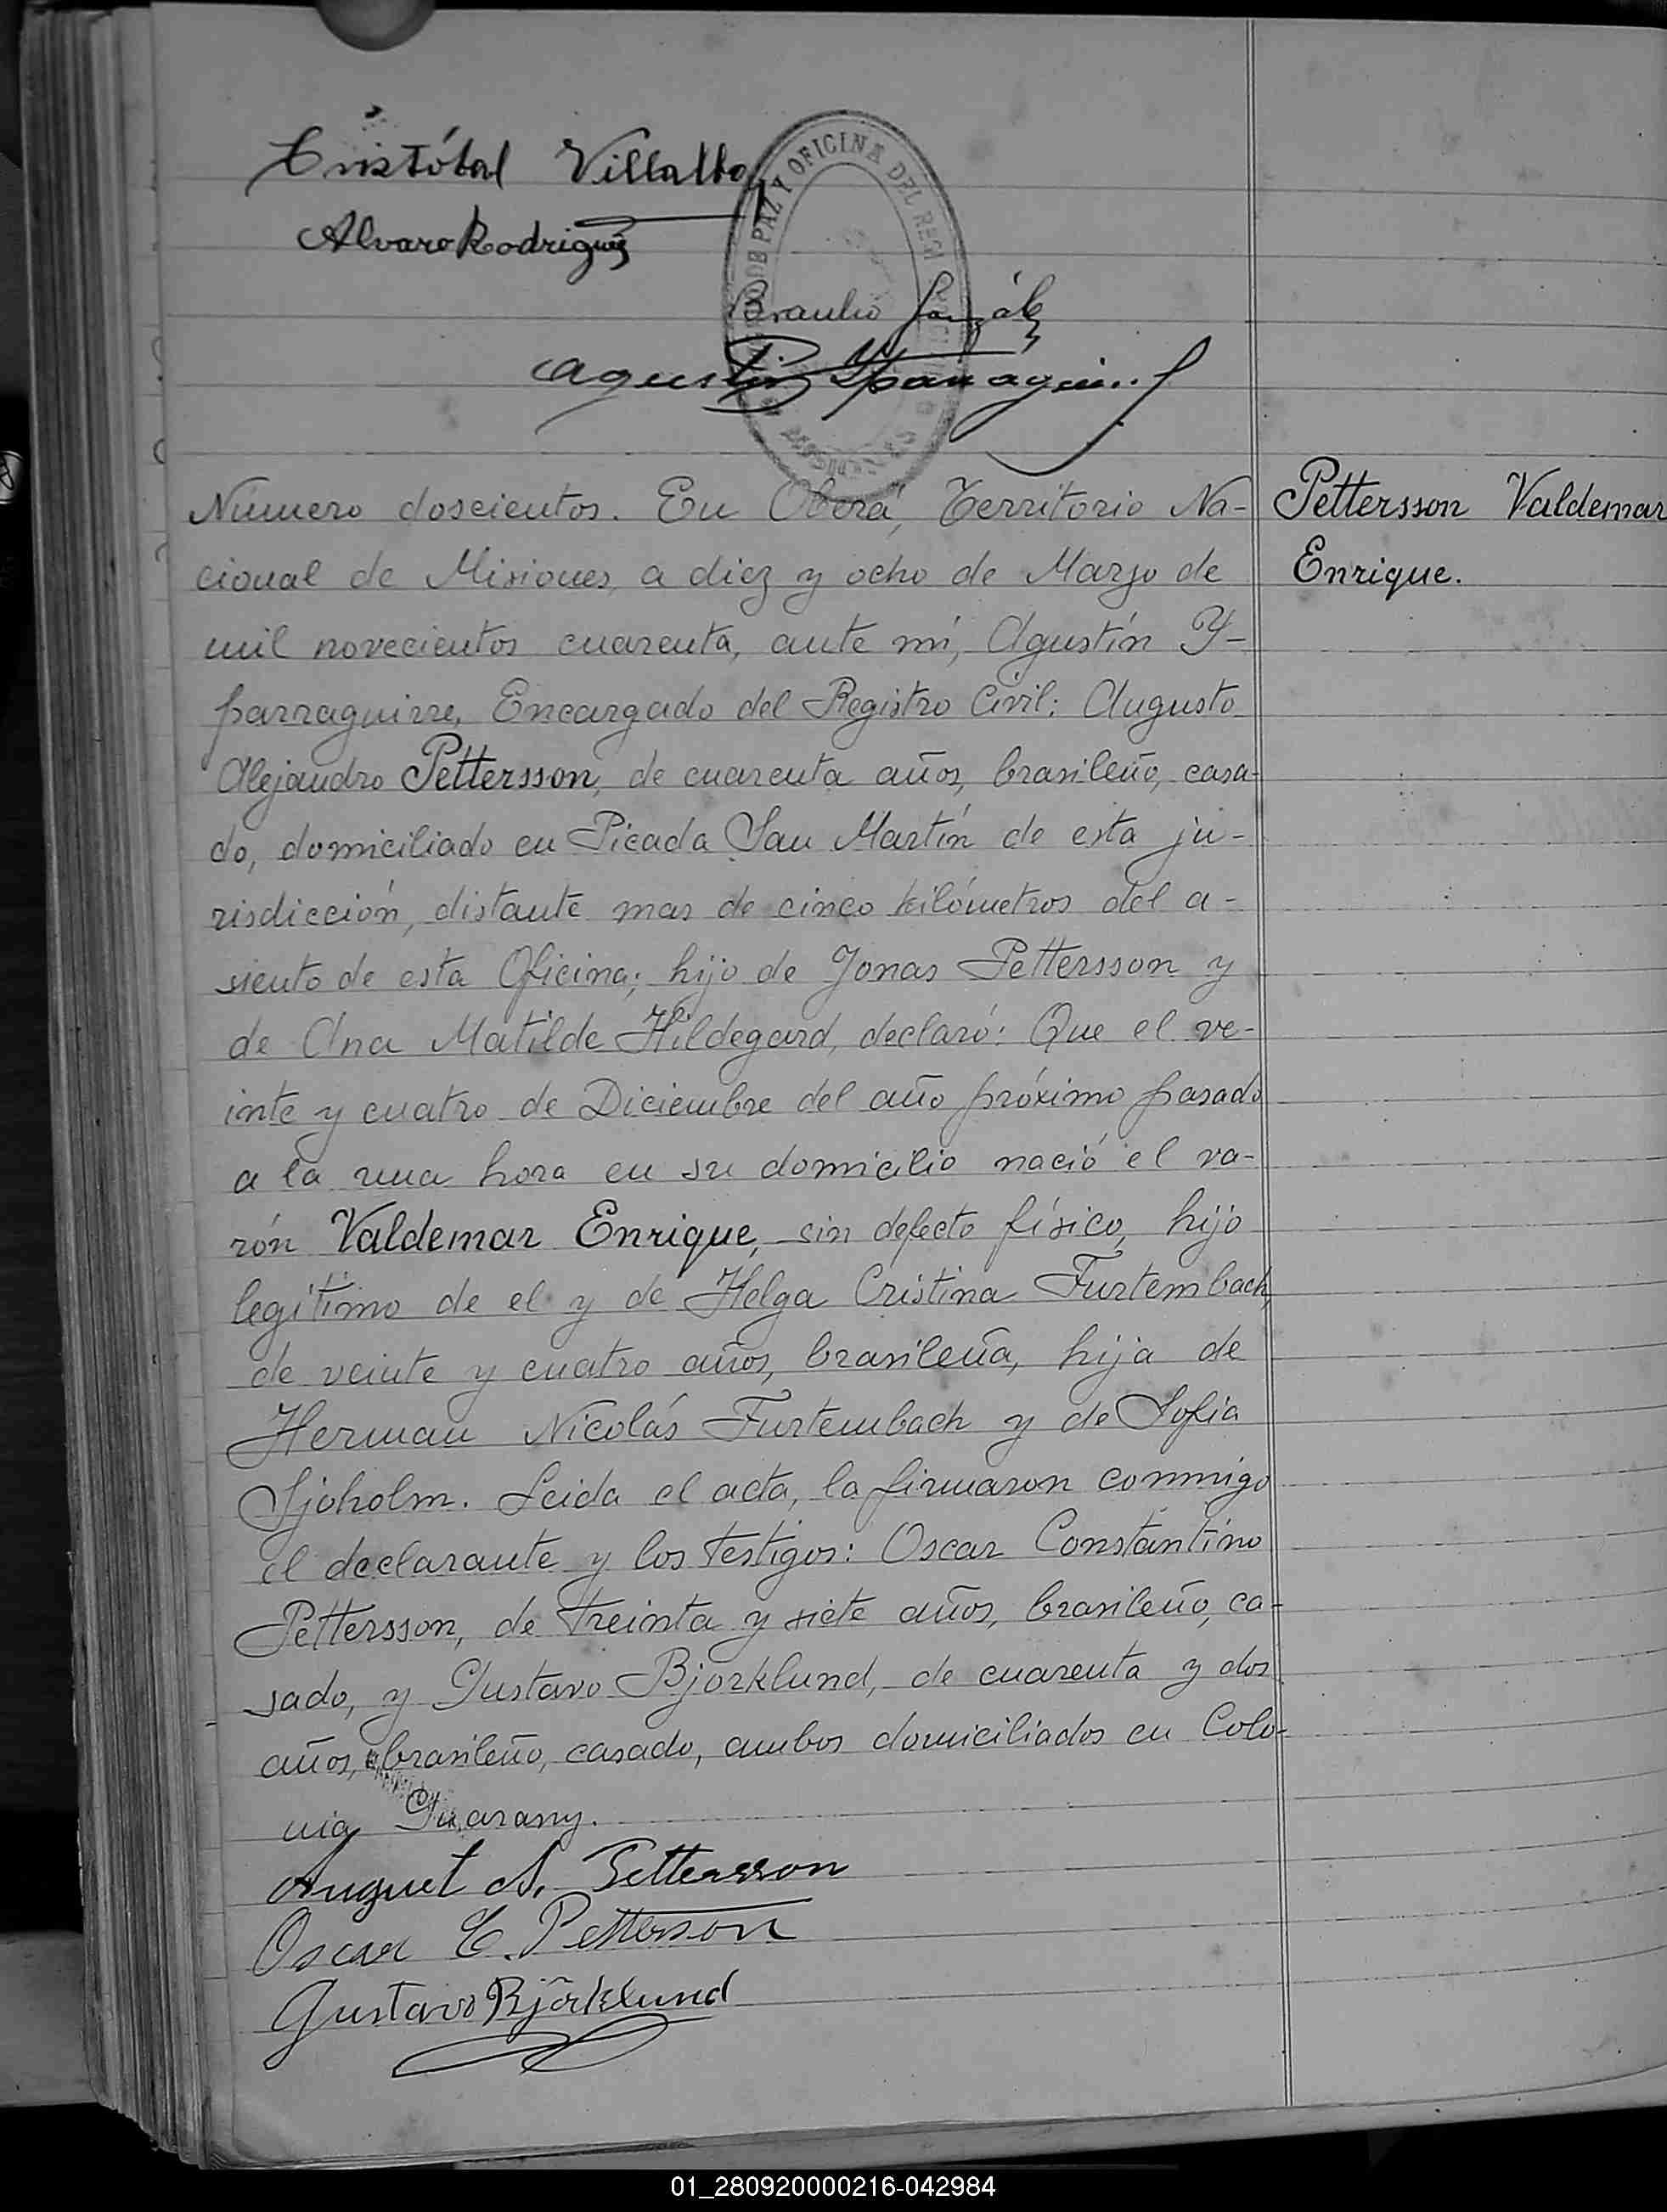 Cristóbal Villalba
Alvaro Rodriguez
DE PAZ Y OFICINA DEL REG
Braulio Gonzálz
Agustin Yparraguirre
Número doscientos. En Oberá, Territorio Na-
cional de Misiones, a diez y ocho de Marzo de
mil novecientos cuarenta, ante mí, Agustín Y-
parraguirre, Encargado del Registro Civil: Augusto
Alejandro Pettersson, de cuarenta años, brasileño, casa-
do, domiciliado en Picada San Martín de esta ju-
risdicción, distante mas de cinco kilómetros del a-
siento de esta Oficina; hijo de Jonas Pettersson y
de Ana Matilde Hildegard, declaró: Que el ve-
inte y cuatro de Diciembre del año próximo pasado
a la una hora en su domicilio nació el va-
rón Valdemar Enrique, sin defecto físico, hijo
legítimo de el y de Helga Cristina Furtembach,
de veinte y cuatro años, brasileña, hija de
Herman Nicolás Furtembach y de Sofia
Sjoholm. Leida el acta, la firmaron conmigo
el declarante y los testigos: Oscar Constantino
Pettersson, de treinta y siete años, brasileño, ca-
sado, y Gustavo Bjorklund, de cuarenta y dos
años, brasileño, casado, ambos domiciliados en Colo-
nia Guarany.
August A. Pettersson
Oscar C. Petterson
Gustavo Björklund
Pettersson Valdemar
Enrique.
01_280920000216-042984